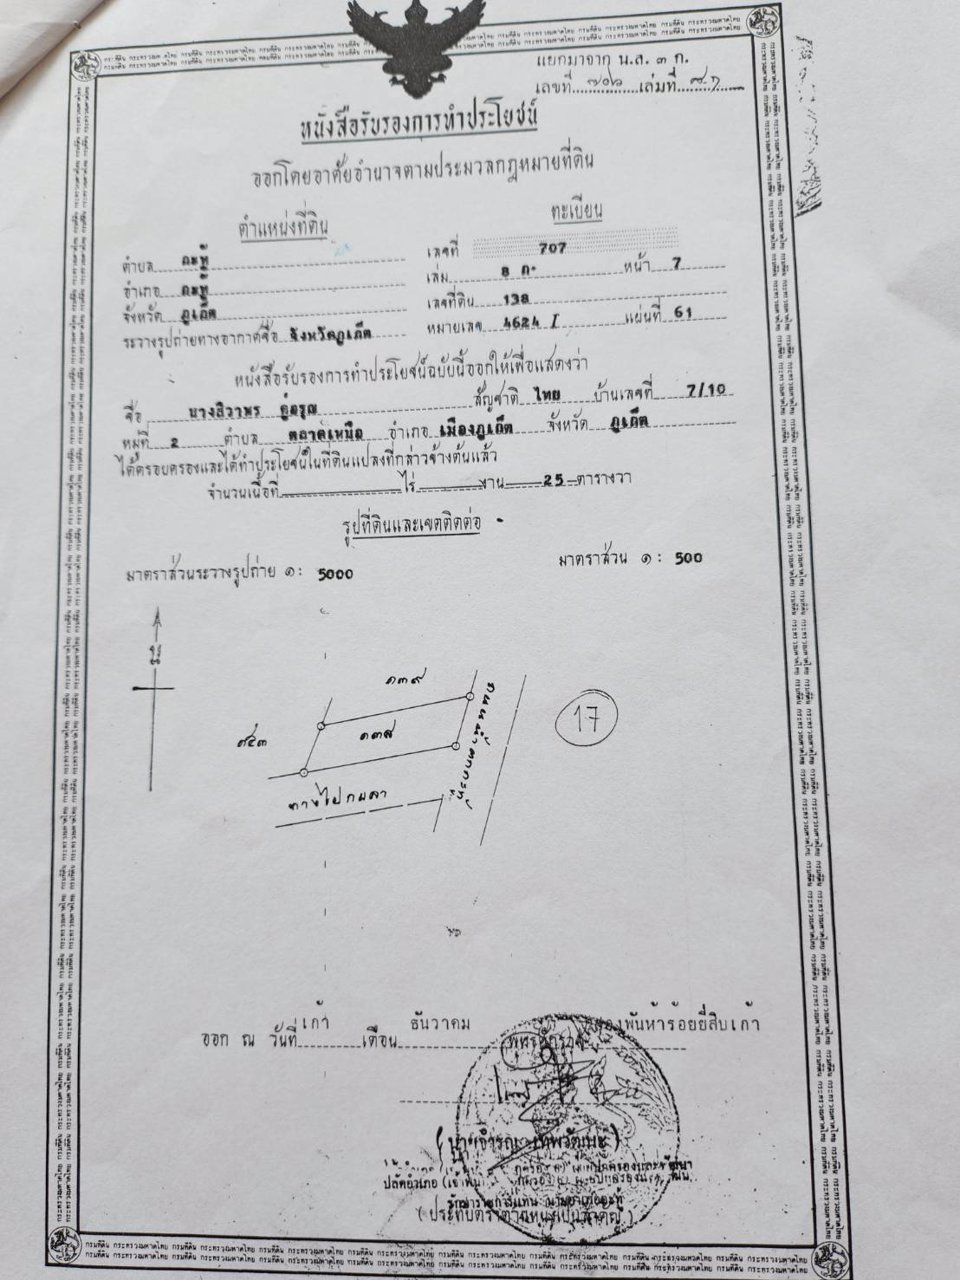 แยกมาจาก น.ส. ๓ ก.
เลขที่ ๗๐๖ เล่มที่
หนังสือรับรองการทำประโยชน์
ออกโดยอาศัยอำนาจตามประมวลกฎหมายที่ดิน
ตำแหน่งที่ดิน
ทะเบียน
ตำบล กะทู้
เลขที่ 707
อำเภอ กะทู้
เล่ม 8 ก. หน้า 7
จังหวัด ภูเก็ต
เลขที่ดิน 138
ระวางรูปถ่ายทางอากาศชื่อ จังหวัดภูเก็ต
หมายเลข 4624 I แผ่นที่ 61
หนังสือรับรองการทำประโยชน์ฉบับนี้ออกให้เพื่อแสดงว่า
ชื่อ นางสิวาพร สัญชาติ ไทย บ้านเลขที่ 7/10
หมู่ที่ 2 ตำบล ตลาดเหนือ อำเภอ เมืองภูเก็ต จังหวัด ภูเก็ต
ได้ครอบครองและได้ทำประโยชน์ในที่ดินแปลงที่กล่าวข้างต้นแล้ว
จำนวนเนื้อที่ ไร่ งาน 25 ตารางวา
รูปที่ดินและเขตติดต่อ
มาตราส่วนระวางรูปถ่าย ๑ : 5000
มาตราส่วน ๑ : 500
๑๓๙
๑๓๘
๑๔๓
ถนนน้ำตกกะทู้
ทางไปกมลา
17
ออก ณ วันที่ เก้า เดือน ธันวาคม พุทธศักราช สองพันห้าร้อยยี่สิบเก้า
(ประทับตราตำแหน่งเป็นสำคัญ)